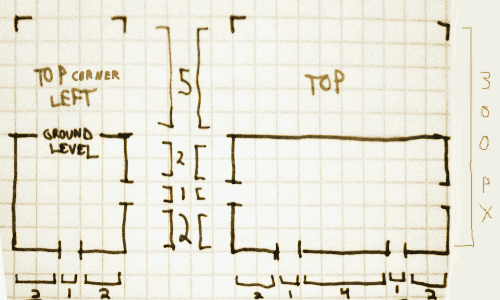 TOP CORNER
LEFT
TOP
5
GROUND
LEVEL
2
1
2
300 PX
2 1 2
2 1 4 1 2